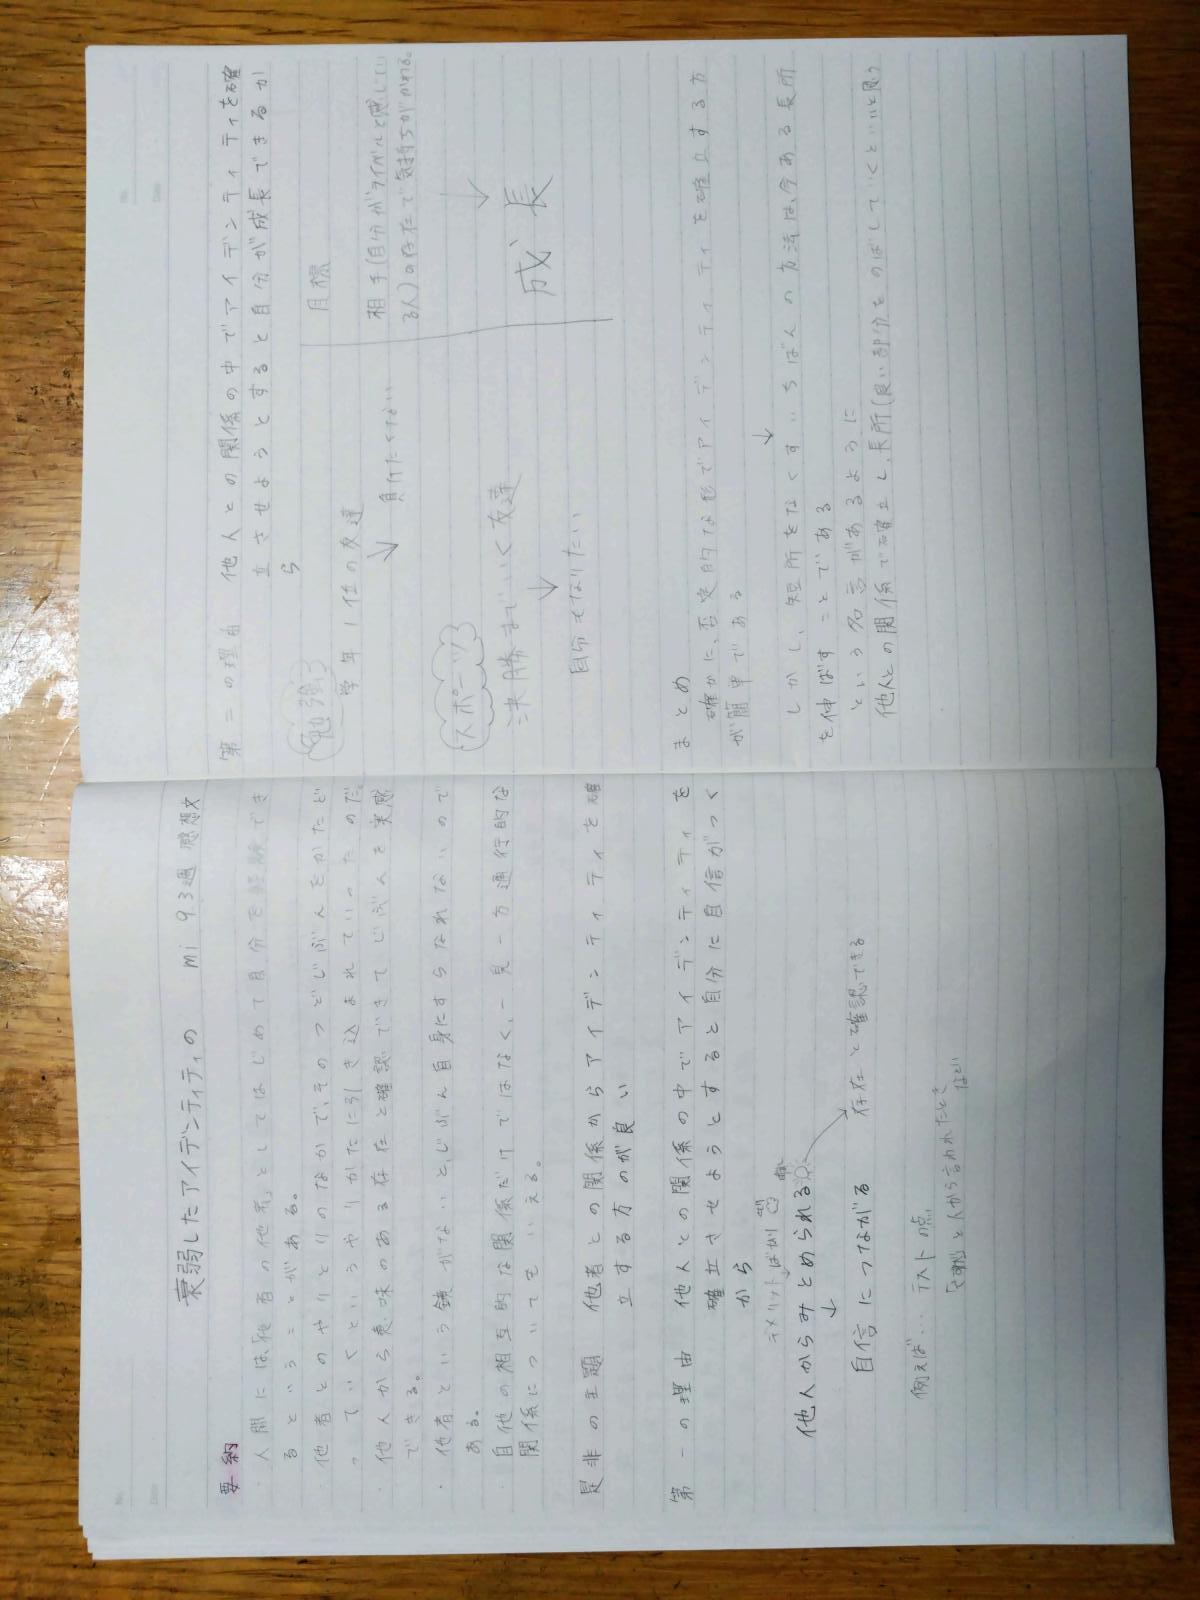 衰弱したアイデンティティの mi 9.3週 感想文
要約
・人間には、「他者の他者」としてはじめて自分を経験でき
るということがある。
他者とのやりとりのなかで、そのつどじぶんをかたど
っていくというやりかたに引き込まれていったのだ。
・他人から意味のある存在と確認できてじぶんを実感
できる。
・他者という鏡がないと、じぶん自身にすらなれないので
ある。
・自他の相互的な関係だけではなく、一見一方通行的な
関係についてもいえる。
是非の主題 他者との関係からアイデンティティを確
立する方のが良い
第一の理由 他人との関係の中でアイデンティティを
確立させようとすると自分に自信がつく
から
デメリットばかり
他人からみとめられる
存在と確認できる
↓
自信につながる
例えば… テストの点
と人から言われたとき
など
第二の理由 他人との関係の中でアイデンティティを確
立させようとすると自分が成長できるか
ら
勉強
学年1位の友達
↓
負けたくない
スポーツ
決勝までいく友達
↓
自分もなりたい
目標
相手(自分がライバルと感じてい
る人)の存在で気持ちがかわる。
↓
成長
まとめ
確かに、否定的な形でアイデンティティを確立する方
が簡単である
↓
しかし、短所をなくすいちばんの方法は、今ある長所
を伸ばすことである
という名言があるように
他人との関係で確立し、長所(良い部分)をのばしていくといいと思う